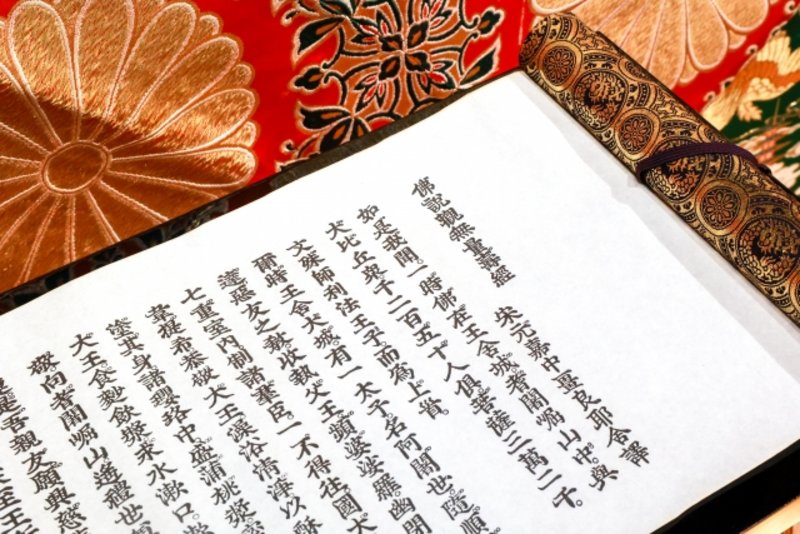 佛說觀無量壽經
宋元嘉中畺良耶舍譯
如是我聞。一時佛在王舍城。耆闍崛山中。與
大比丘衆千二百五十人俱。菩薩三萬二千。
文殊師利法王子。而爲上首。
爾時王舍大城。有一太子。名阿闍世。隨順
達惡友之敎。收執父王頻婆娑羅。幽閉
七重室內。制諸羣臣。一不得往。國大
韋提希。恭敬大王。澡浴清淨。以酥
塗其身。諸瓔珞中。盛蒲桃漿。密
大王。食麨飲漿。求水漱口。
敬。向耆闍崛山。遙禮世
是吾親友。願興慈
至王